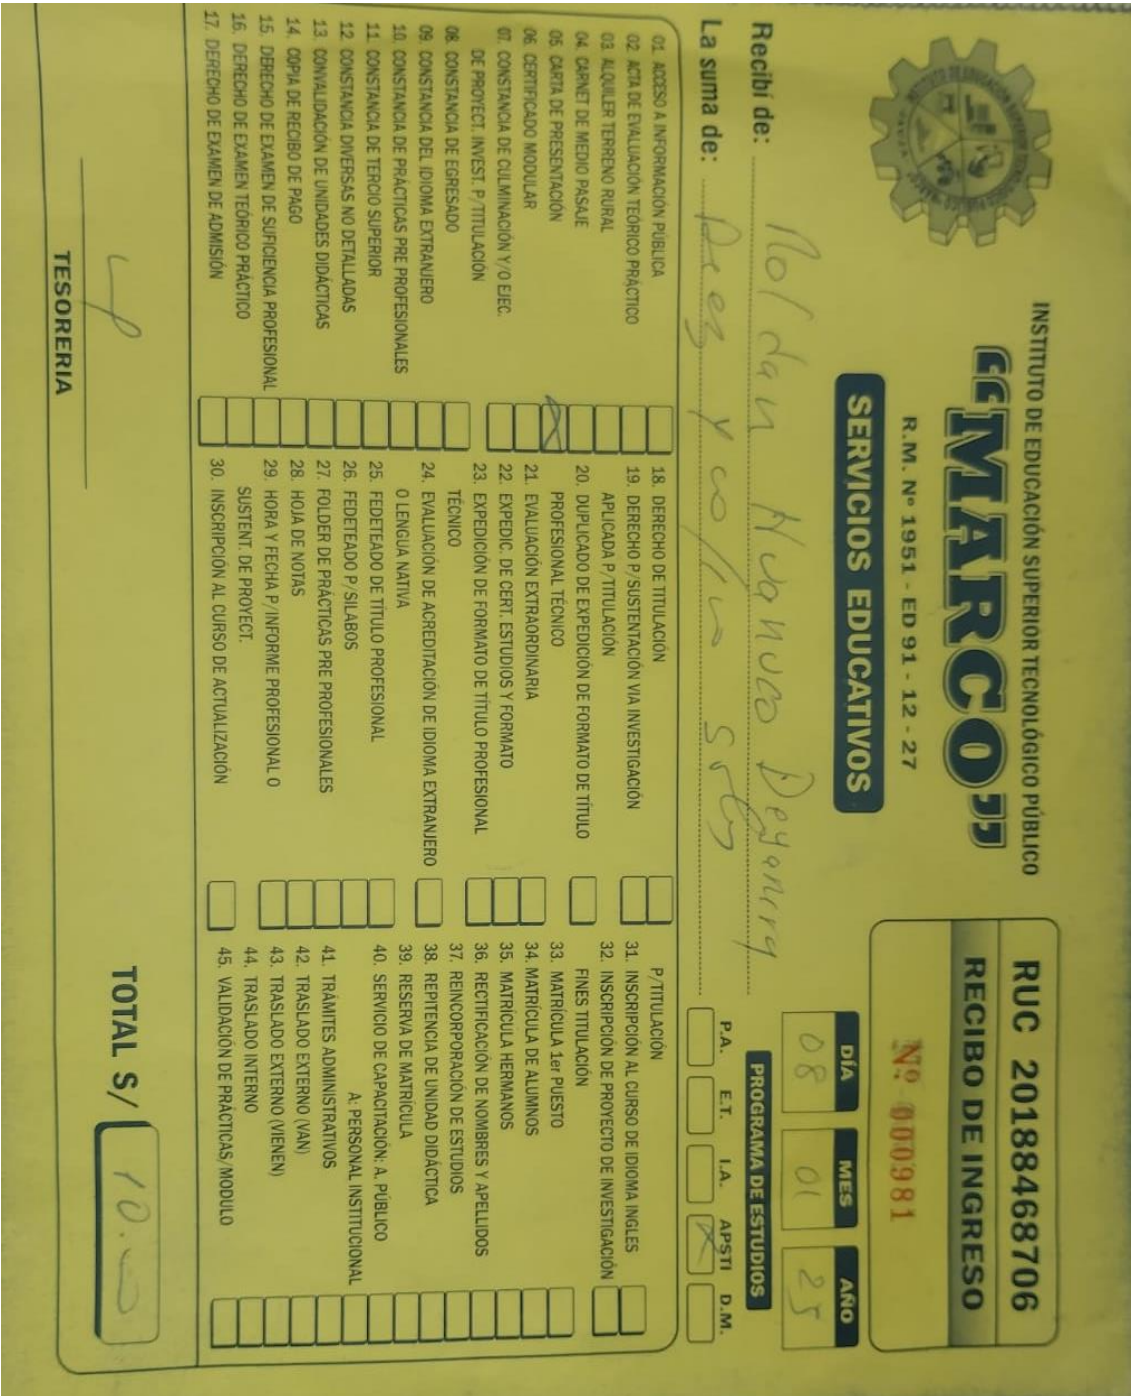 INSTITUTO DE EDUCACIÓN SUPERIOR TECNOLÓGICO PÚBLICO
“MARCO”
R.M. Nº 1951 - ED 91 - 12 - 27
SERVICIOS EDUCATIVOS
RUC 20188468706
RECIBO DE INGRESO
Nº 000981
DÍA MES AÑO
08 01 25
Recibí de: Roldan Huanuco Deyanira
La suma de: Diez y 00/100 soles
PROGRAMA DE ESTUDIOS
P.A. E.T. I.A. APSTI D.M.
X
01. ACCESO A INFORMACIÓN PÚBLICA
02. ACTA DE EVALUACIÓN TEÓRICO PRÁCTICO
03. ALQUILER TERRENO RURAL
04. CARNET DE MEDIO PASAJE
05. CARTA DE PRESENTACIÓN X
06. CERTIFICADO MODULAR
07. CONSTANCIA DE CULMINACIÓN Y/O EJEC.
DE PROYECT. INVEST. P/TITULACIÓN
08. CONSTANCIA DE EGRESADO
09. CONSTANCIA DEL IDIOMA EXTRANJERO
10. CONSTANCIA DE PRÁCTICAS PRE PROFESIONALES
11. CONSTANCIA DE TERCIO SUPERIOR
12. CONSTANCIA DIVERSAS NO DETALLADAS
13. CONVALIDACIÓN DE UNIDADES DIDÁCTICAS
14. COPIA DE RECIBO DE PAGO
15. DERECHO DE EXAMEN DE SUFICIENCIA PROFESIONAL
16. DERECHO DE EXAMEN TEÓRICO PRÁCTICO
17. DERECHO DE EXAMEN DE ADMISIÓN
18. DERECHO DE TITULACIÓN
19. DERECHO P/SUSTENTACIÓN VIA INVESTIGACIÓN
APLICADA P/TITULACIÓN
20. DUPLICADO DE EXPEDICIÓN DE FORMATO DE TÍTULO
PROFESIONAL TÉCNICO
21. EVALUACIÓN EXTRAORDINARIA
22. EXPEDIC. DE CERT. ESTUDIOS Y FORMATO
23. EXPEDICIÓN DE FORMATO DE TÍTULO PROFESIONAL
TÉCNICO
24. EVALUACIÓN DE ACREDITACIÓN DE IDIOMA EXTRANJERO
O LENGUA NATIVA
25. FEDETEADO DE TÍTULO PROFESIONAL
26. FEDETEADO P/SILABOS
27. FOLDER DE PRÁCTICAS PRE PROFESIONALES
28. HOJA DE NOTAS
29. HORA Y FECHA P/INFORME PROFESIONAL O
SUSTENT. DE PROYECT.
30. INSCRIPCIÓN AL CURSO DE ACTUALIZACIÓN
P/TITULACIÓN
31. INSCRIPCIÓN AL CURSO DE IDIOMA INGLES
32. INSCRIPCIÓN DE PROYECTO DE INVESTIGACIÓN
FINES TITULACIÓN
33. MATRÍCULA 1er PUESTO
34. MATRÍCULA DE ALUMNOS
35. MATRÍCULA HERMANOS
36. RECTIFICACIÓN DE NOMBRES Y APELLIDOS
37. REINCORPORACIÓN DE ESTUDIOS
38. REPITENCIA DE UNIDAD DIDÁCTICA
39. RESERVA DE MATRÍCULA
40. SERVICIO DE CAPACITACIÓN: A. PÚBLICO
A: PERSONAL INSTITUCIONAL
41. TRÁMITES ADMINISTRATIVOS
42. TRASLADO EXTERNO (VAN)
43. TRASLADO EXTERNO (VIENEN)
44. TRASLADO INTERNO
45. VALIDACIÓN DE PRÁCTICAS/MODULO
TESORERIA
TOTAL S/ 10.00